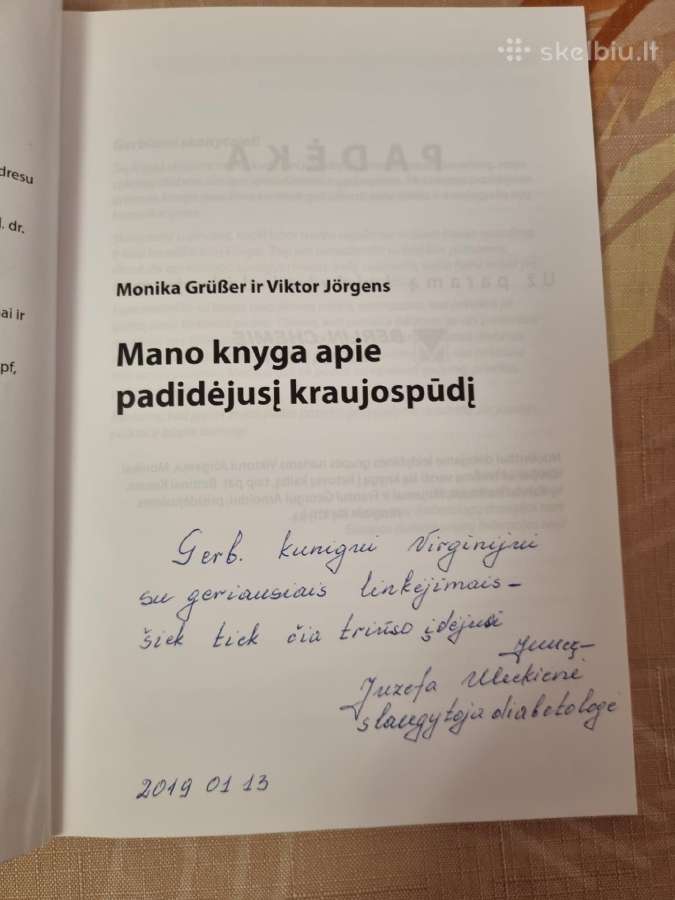 skelbiu.lt
dresu
. dr.
ai ir
pf,
PADĖKA
Už paramą
BERLIN-CHEMIE
Monika Grüßer ir Viktor Jörgens
Mano knyga apie
padidėjusį kraujospūdį
Gerb. kunigui Virginijui
su geriausiais linkėjimais –
šiek tiek čia triūso įdėjusi
Juzefa
slaugytoja diabetologė
2019 01 13